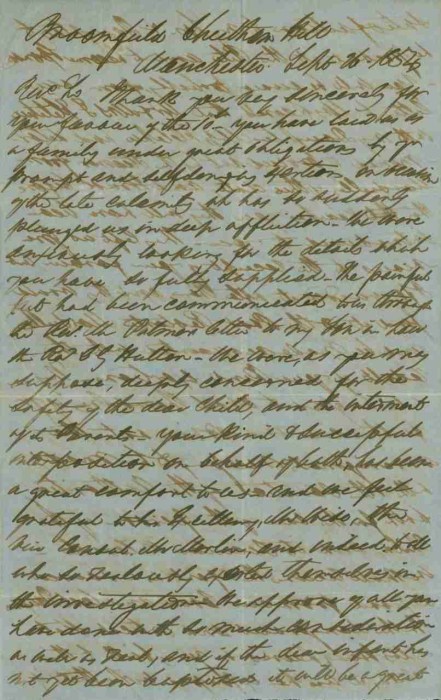 Broomfield Cheetham Hill
Manchester Sept 26. 1854
I thank you very sincerely for
your favour of the you have laid us as
a family under great obligations by yr
prompt and exertion on occasion
of the late calamity wh has so suddenly
plunged us in deep affliction. We were
anxiously looking for the details which
you have so fully supplied. The painful
had been communicated to us through
the Revd. Mr letter to my Son in law
the Revd Hutton. We were, as you may
suppose, deeply concerned for the
safety of the dear Child, and the interment
of its Parents. Your kind & successful
interposition on behalf of both, has been
a great comfort to us. And we feel
grateful to his Excellency, Mr the
Consul, Mr and indeed to all
who so zealously exerted themselves in
the investigation. We approve of all you
have done with so much consideration
as well as and if the dear infant has
not yet been baptized it will be a great